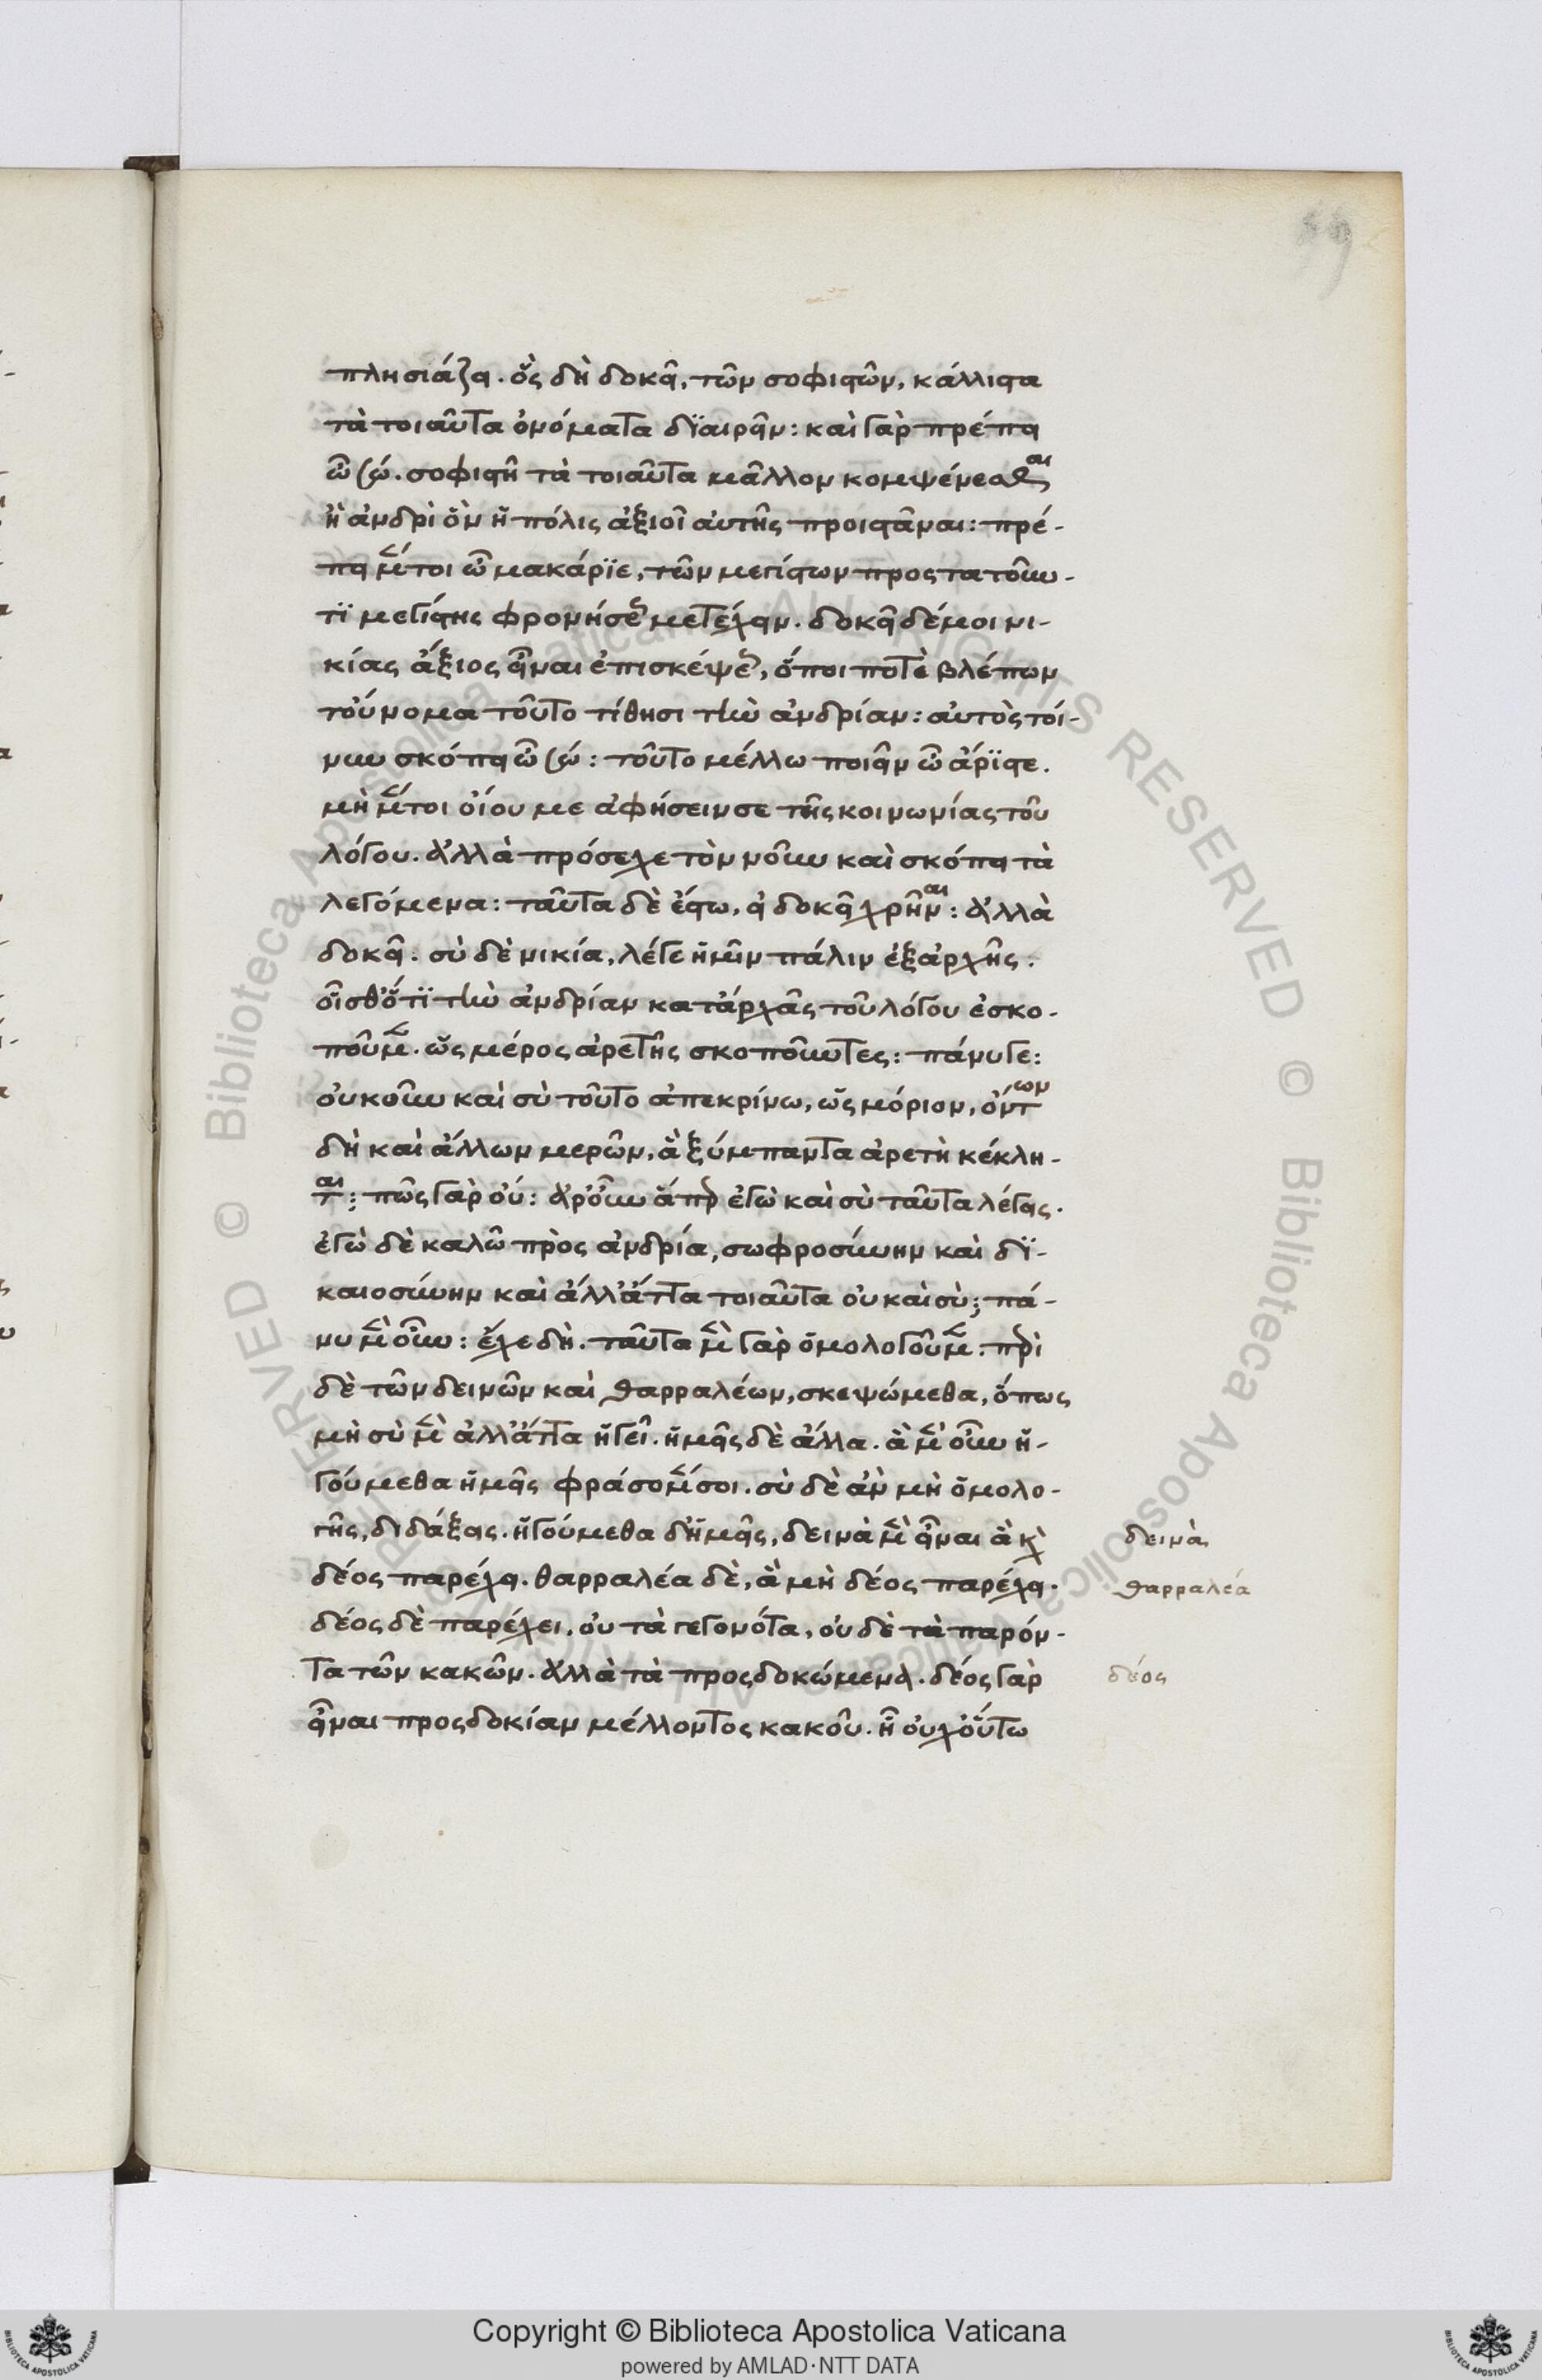 59
πλησιάζει. ὃς δὴ δοκεῖ, τῶν σοφιστῶν, κάλλιστα
τὰ τοιαῦτα ὀνόματα διαιρεῖν: καὶ γὰρ πρέπει
ὦ σώ. σοφιστῆ τὰ τοιαῦτα μᾶλλον κομψεύεσθαι
ἢ ἀνδρὶ ὃν ἡ πόλις ἀξιοῖ αὐτῆς προϊστάναι: πρέ-
πει μέντοι ὦ μακάριε, τῶν μεγίστων προστατοῦν-
τι μεγίστης φρονήσεως μετέχειν. δοκεῖ δέ μοι νι-
κίας ἄξιος εἶναι ἐπισκέψεως, ὅποι ποτὲ βλέπων
τοὔνομα τοῦτο τίθησι τὴν ἀνδρίαν: αὐτὸς τοί-
νυν σκόπει ὦ σώ: τοῦτο μέλλω ποιεῖν ὦ ἄριστε.
μὴ μέντοι οἴου με ἀφήσειν σε τῆς κοινωνίας τοῦ
λόγου. ἀλλὰ πρόσεχε τὸν νοῦν καὶ σκόπει τὰ
λεγόμενα: ταῦτα δὲ ἔστω, εἰ δοκεῖ χρῆναι: ἀλλὰ
δοκεῖ: σὺ δὲ νικία, λέγε ἡμῖν πάλιν ἐξαρχῆς:
οἶσθ' ὅτι τὴν ἀνδρίαν κατ' ἀρχὰς τοῦ λόγου ἐσκο-
ποῦμεν. ὡς μέρος ἀρετῆς σκοποῦντες: πάνυ γε:
οὐκοῦν καὶ σὺ τοῦτο ἀπεκρίνω, ὡς μόριον, ὄντων
δὴ καὶ ἄλλων μερῶν, ἃ ξύμπαντα ἀρετὴ κέκλη-
ται: πῶς γὰρ οὔ: ἆρ' οὖν ἅπερ ἐγὼ καὶ σὺ ταῦτα λέγεις.
ἐγὼ δὲ καλῶ πρὸς ἀνδρία, σωφροσύνην καὶ δι-
καιοσύνην καὶ ἄλλ' ἄττα τοιαῦτα οὐ καὶ σὺ; πά-
νυ μὲν οὖν: ἔχε δή. ταῦτα μὲν γὰρ ὁμολογοῦμεν: περὶ
δὲ τῶν δεινῶν καὶ θαρραλέων, σκεψώμεθα, ὅπως
μὴ σὺ μὲν ἀλλ' ἄττα ἡγεῖ. ἡμεῖς δὲ ἄλλα. ἃ μὲν οὖν ἡ-
γούμεθα ἡμεῖς φράσομέν σοι. σὺ δὲ ἂν μὴ ὁμολο-
γῆς, διδάξεις. ἡγούμεθα δ' ἡμεῖς, δεινὰ μὲν εἶναι ἃ καὶ
δεινὰ
δέος παρέχει. θαρραλέα δὲ, ἃ μὴ δέος παρέχει.
θαρραλέα
δέος δὲ παρέχει, οὐ τὰ γεγονότα, οὐδὲ τὰ παρόν-
τα τῶν κακῶν. ἀλλὰ τὰ προσδοκώμενα. δέος γὰρ
δέος
εἶναι προσδοκίαν μέλλοντος κακοῦ. ἢ οὐχ οὕτω
Copyright © Biblioteca Apostolica Vaticana
powered by AMLAD·NTT DATA